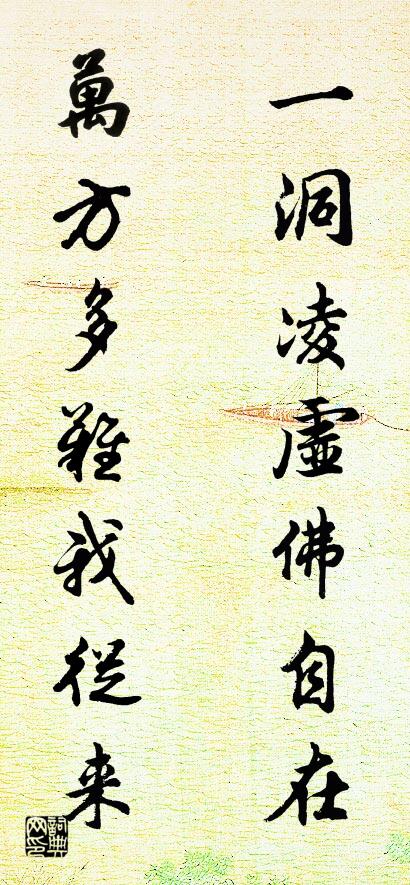 一洞凌虛佛自在
萬方多難我從来
詞典網印